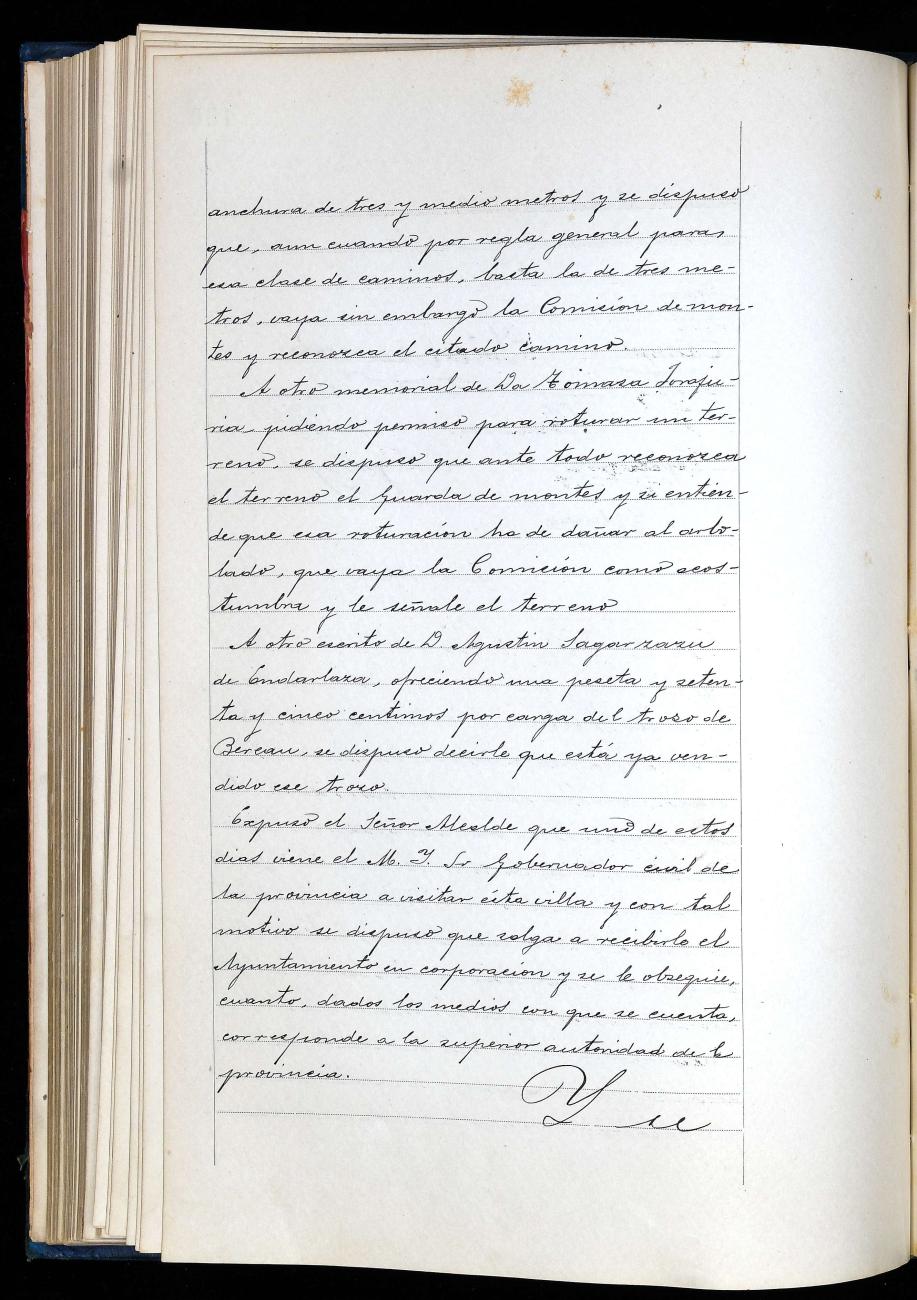 anchura de tres y medio metros y se dispuso
que, aun cuando por regla general para,
esa clase de caminos, basta la de tres me-
tros, vaya sin embargo la Comisión de mon-
tes y reconozca el citado camino.
A otro memorial de Da Tomasa Iraju-
ria pidiendo permiso para roturar un ter-
reno, se dispuso que ante todo reconozca
el terreno el Guarda de montes y si entien-
de que esa roturación ha de dañar al arbo-
lado, que vaya la Comisión como acos-
tumbra y le señale el terreno
A otro escrito de D. Agustin Sagarzazu
de Endarlaza, ofreciendo una peseta y seten-
ta y cinco centimos por carga del trozo de
Bereau, se dispuso decirle que está ya ven-
dido ese trozo.
Expuso el Señor Alcalde que uno de estos
dias viene el M. Y. Sr Gobernador civil de
la provincia a visitar ésta villa y con tal
motivo se dispuso que salga a recibirlo el
Ayuntamiento en corporación y se le obsequie,
cuanto, dados los medios con que se cuenta,
corresponde a la superior autoridad de la
provincia.
Y se